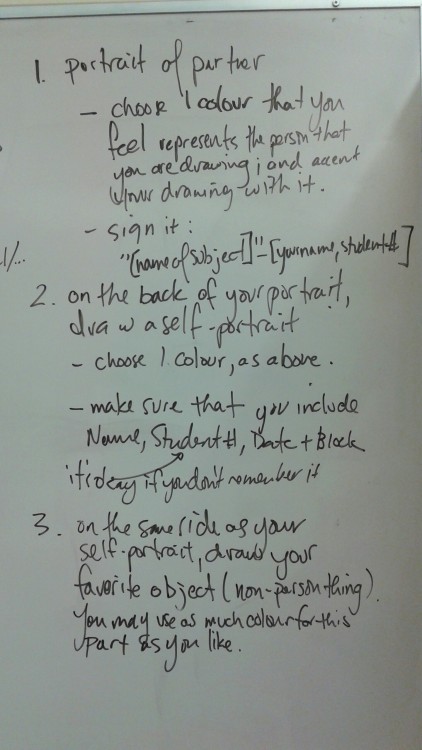 1. portrait of partner
- choose 1 colour that you
feel represents the person that
you are drawing; and accent
your drawing with it.
- sign it:
"[name of subject]"-[your name, student#]
2. on the back of your portrait,
draw a self-portrait
- choose 1 colour, as above.
- make sure that you include
Name, Student #, Date + Block
it's okay if you don't remember it
3. on the same side as your
self-portrait, draw your
favorite object (non-person thing).
You may use as much colour for this
part as you like.